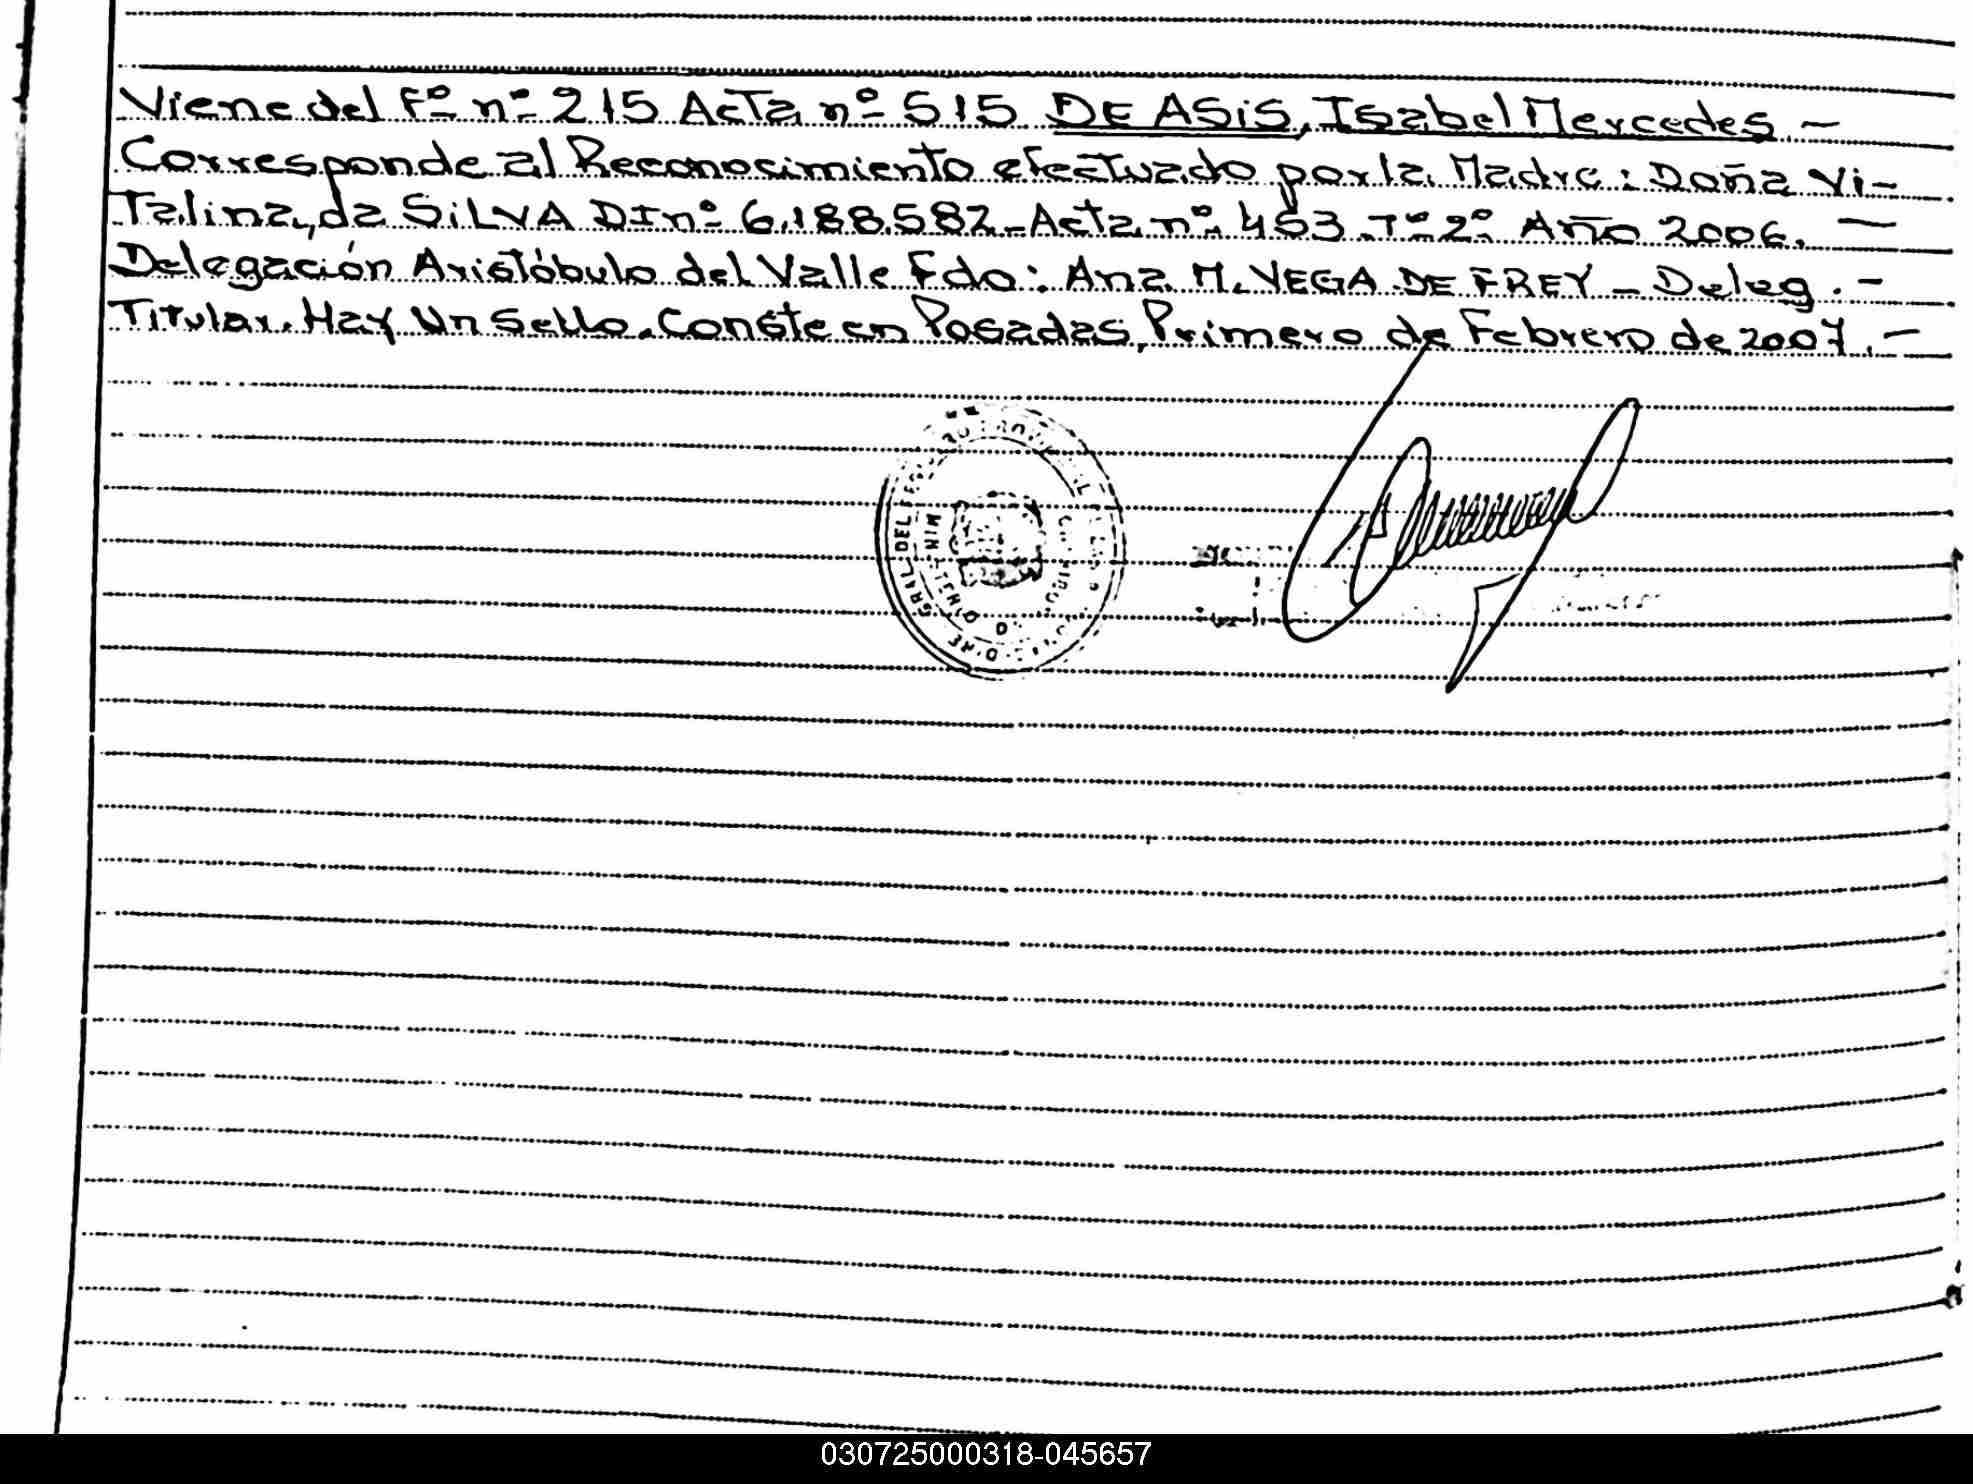 Viene del Fº nº 215 Acta nº 515 DE ASiS, Isabel Mercedes –
Corresponde al Reconocimiento efectuado por la Madre: Doña Vi-
Talina, da SiLVA DI nº 6.188.582 – Acta nº 453 Tº 2º Año 2006. –
Delegación Aristóbulo del Valle Fdo: Ana M. VEGA DE FREY – Deleg. –
Titular. Hay Un Sello. Conste en Posadas, Primero de Febrero de 2007. –
GRAL DEL
030725000318-045657